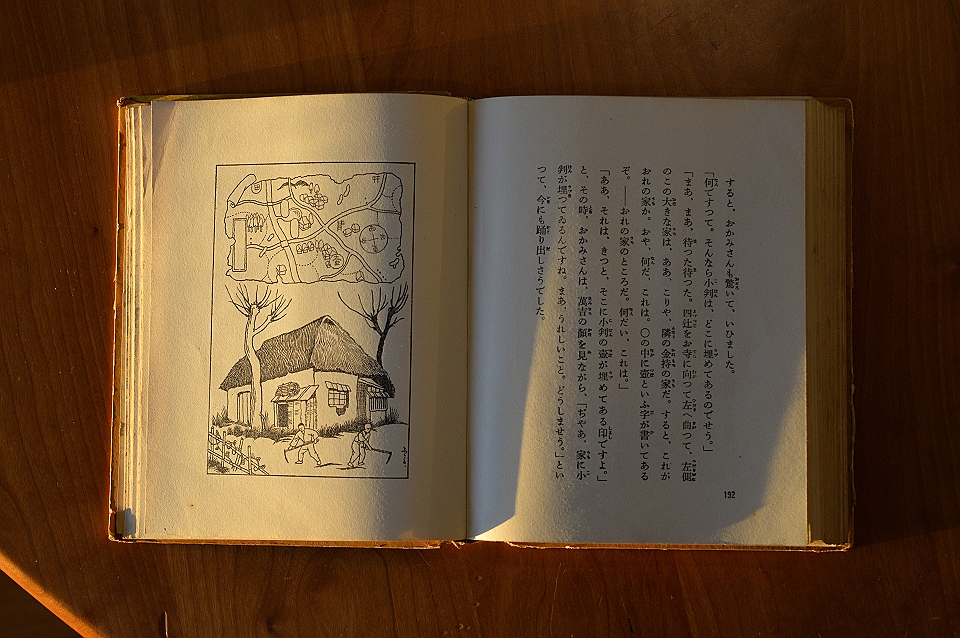 すると、おかみさんも驚いて、いひました。
「何ですつて。そんなら小判は、どこに埋めてあるのでせう。」
「まあ、まあ、待つた待つた。四辻をお寺に向つて左へ曲つて、左側
のこの大きな家は、ああ、こりや、隣の金持の家だ。すると、これが
おれの家か。おや、何だ、これは。〇の中に壺といふ字が書いてある
ぞ。――おれの家のところだ。何だい、これは。」
「ああ、それは、きつと、そこに小判の壺が埋めてある印ですよ。」
と、その時、おかみさんは、萬吉の顏を見ながら、「ぢやあ、家に小
判が埋つてゐるんですね。まあ、うれしいこと。どうしませう。」とい
つて、今にも踊り出しさうでした。
192